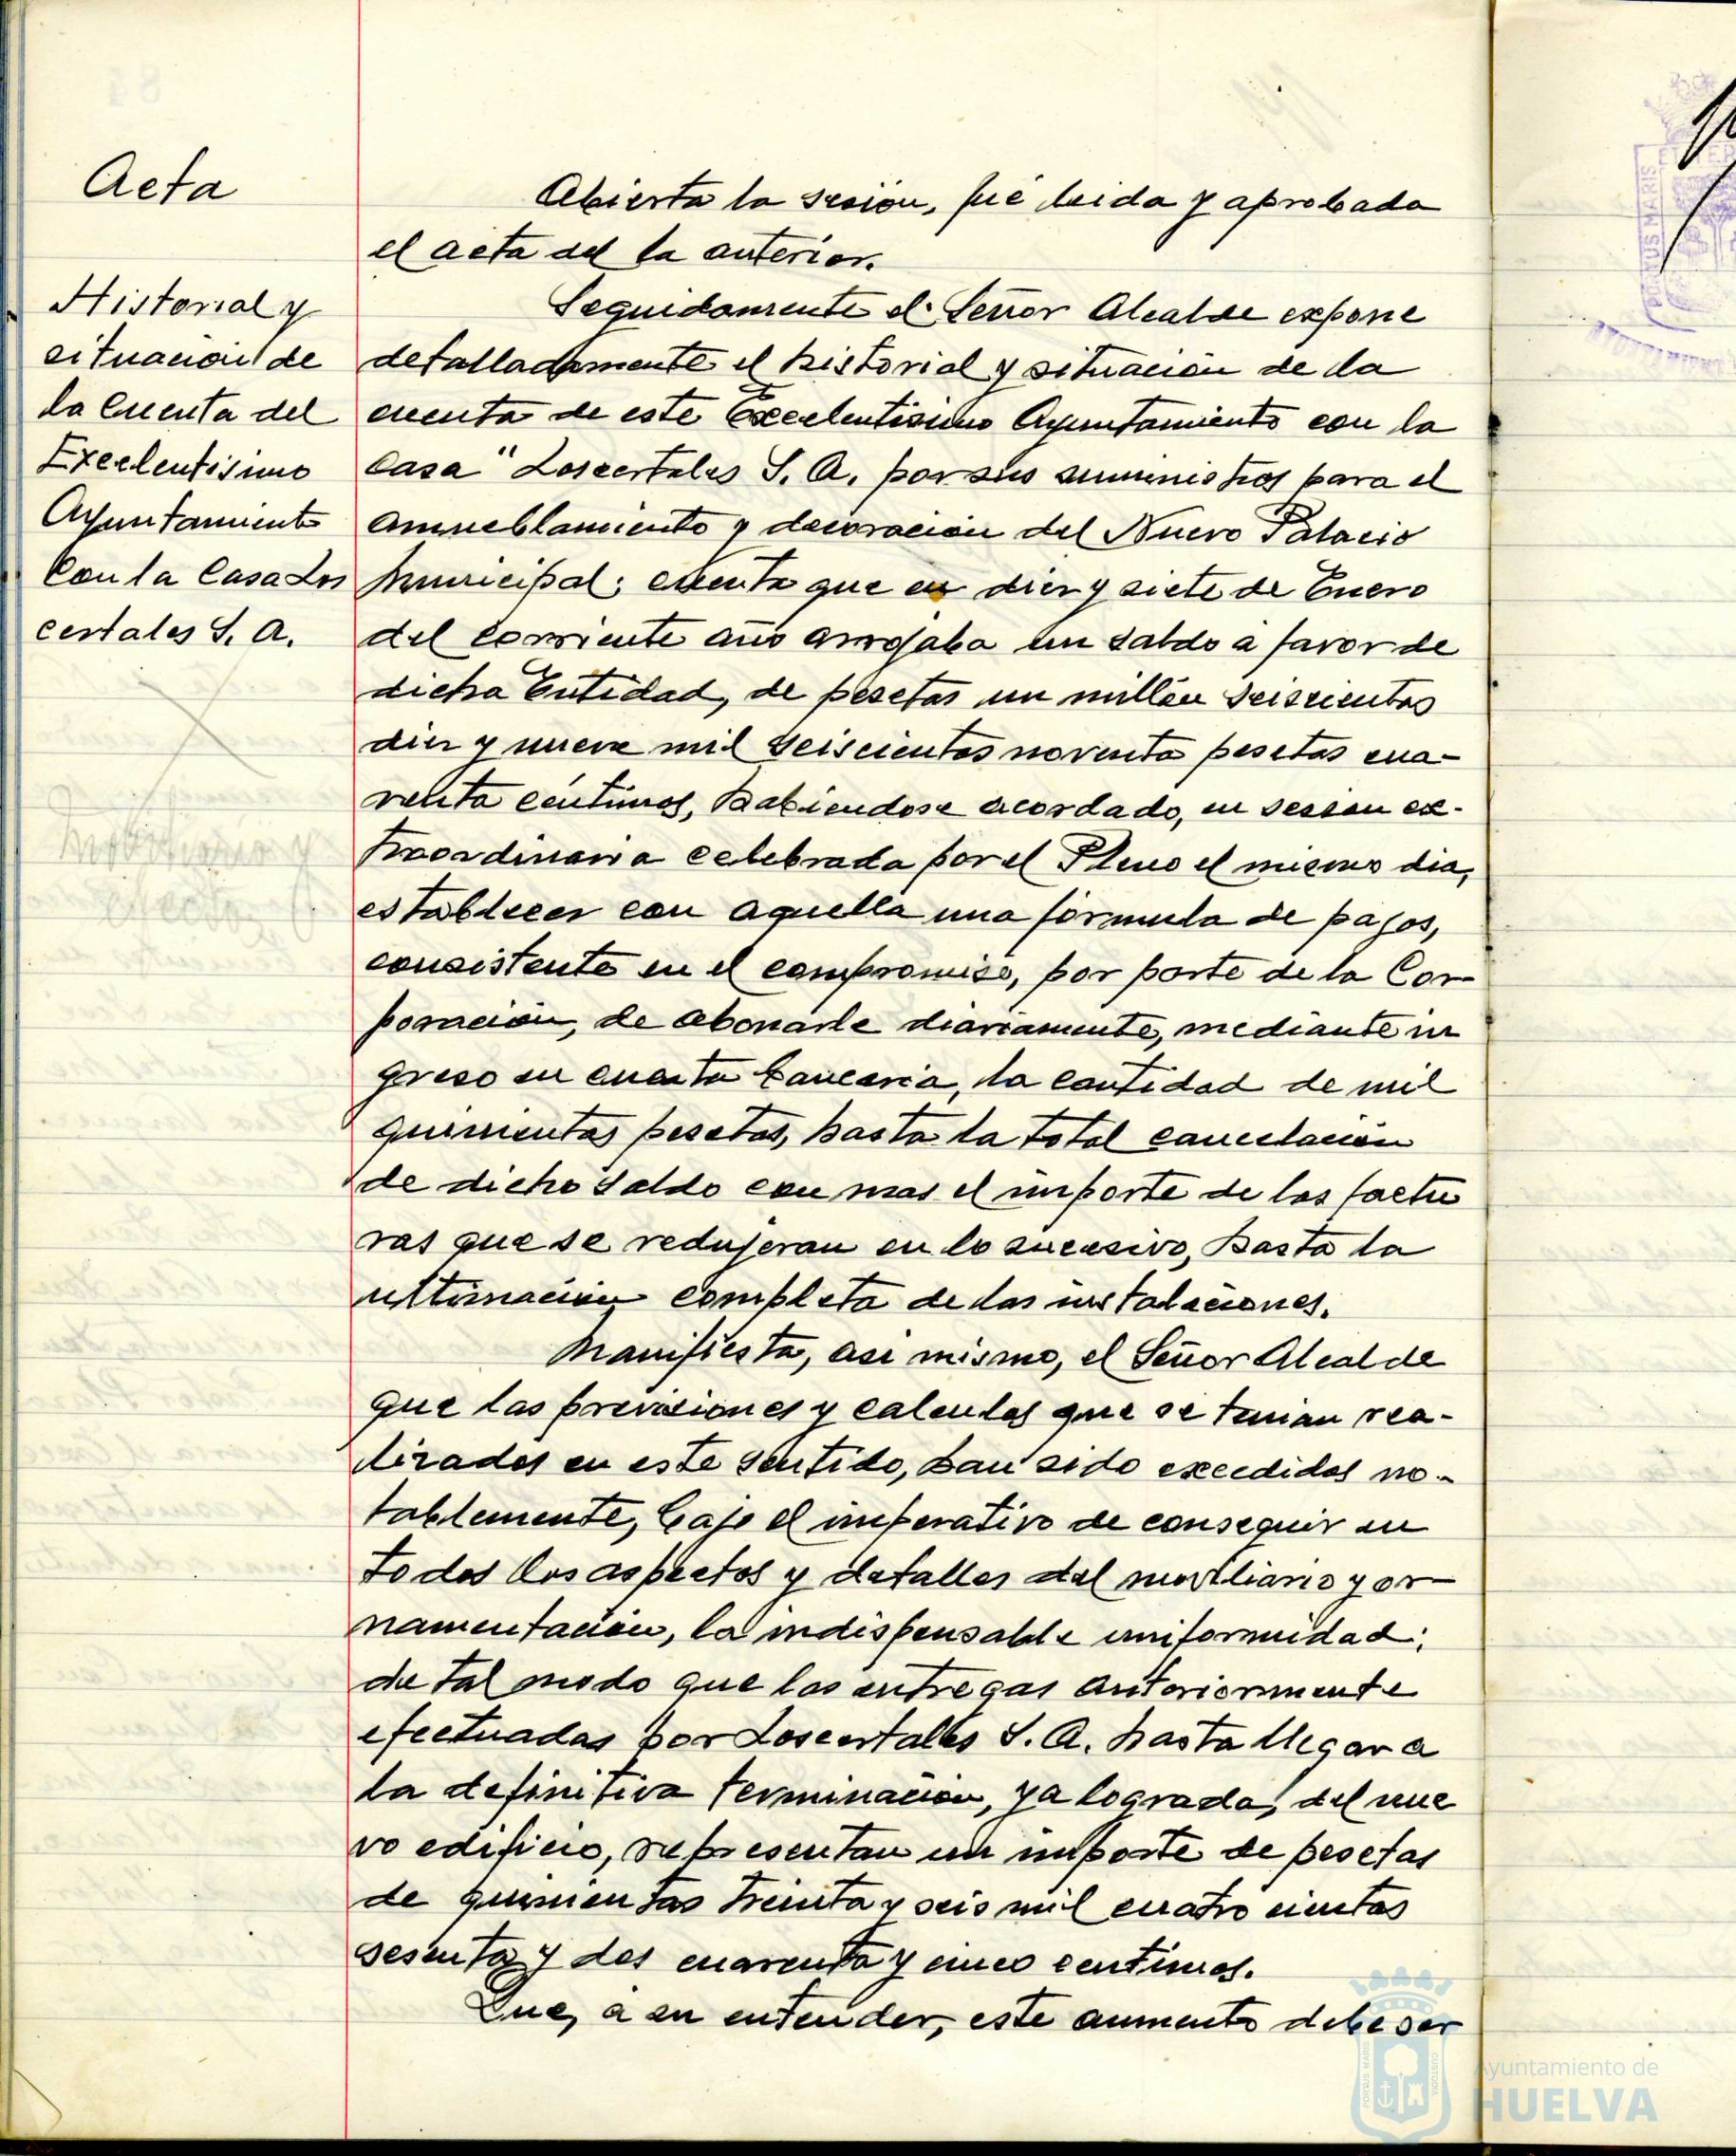 Acta
Historial y
situación de
la Cuenta del
Excelentísimo
Ayuntamiento
Con la Casa Los
certales S. A.
Abierta la sesión, fué leida y aprobada
el acta del la anterior.
Seguidamente el Señor Alcalde expone
detalladamente el historial y situación de la
cuenta de este Excelentísimo Ayuntamiento con la
Casa "Loscertales S. A. por sus suministros para el
amueblamiento y decoración del Nuevo Palacio
Municipal; cuenta que en diez y siete de Enero
del corriente año arrojaba un saldo a favor de
dicha Entidad, de pesetas un millón seiscientas
diez y nueve mil seiscientas noventa pesetas cua-
renta céntimos, habiendose acordado, en sesson ex-
traordinaria celebrada por el Pleno el mismo dia,
establecer con aquella una fórmula de pagos,
consistente en el compromiso, por parte de la Cor-
poración, de abonarle diariamente, mediante in
greso en cuenta bancaria, la cantidad de mil
quinientas pesetas, hasta la total cancelación
de dicho saldo con mas el importe de las factu
ras que se redujeran en lo sucesivo, hasta la
ultimación completa de las instalaciones.
Manifiesta, asi mismo, el Señor Alcalde
que las previsiones y calculos que se tenian rea-
lizados en este sentido, han sido excedidos no-
tablemente, bajo el imperativo de conseguir en
todos los aspectos y detalles del moviliario y or-
namentación, la indispensable uniformidad;
de tal modo que las entregas anteriormente
efectuadas por Loscertales S. A. hasta llegar a
la definitiva terminación, ya lograda, del nue
vo edificio, representan un importe de pesetas
de quinientas treinta y seis mil cuatro cientas
sesenta y dos cuarenta y cinco centimos.
Que, a su entender, este aumento debe ser
Ayuntamiento de
HUELVA